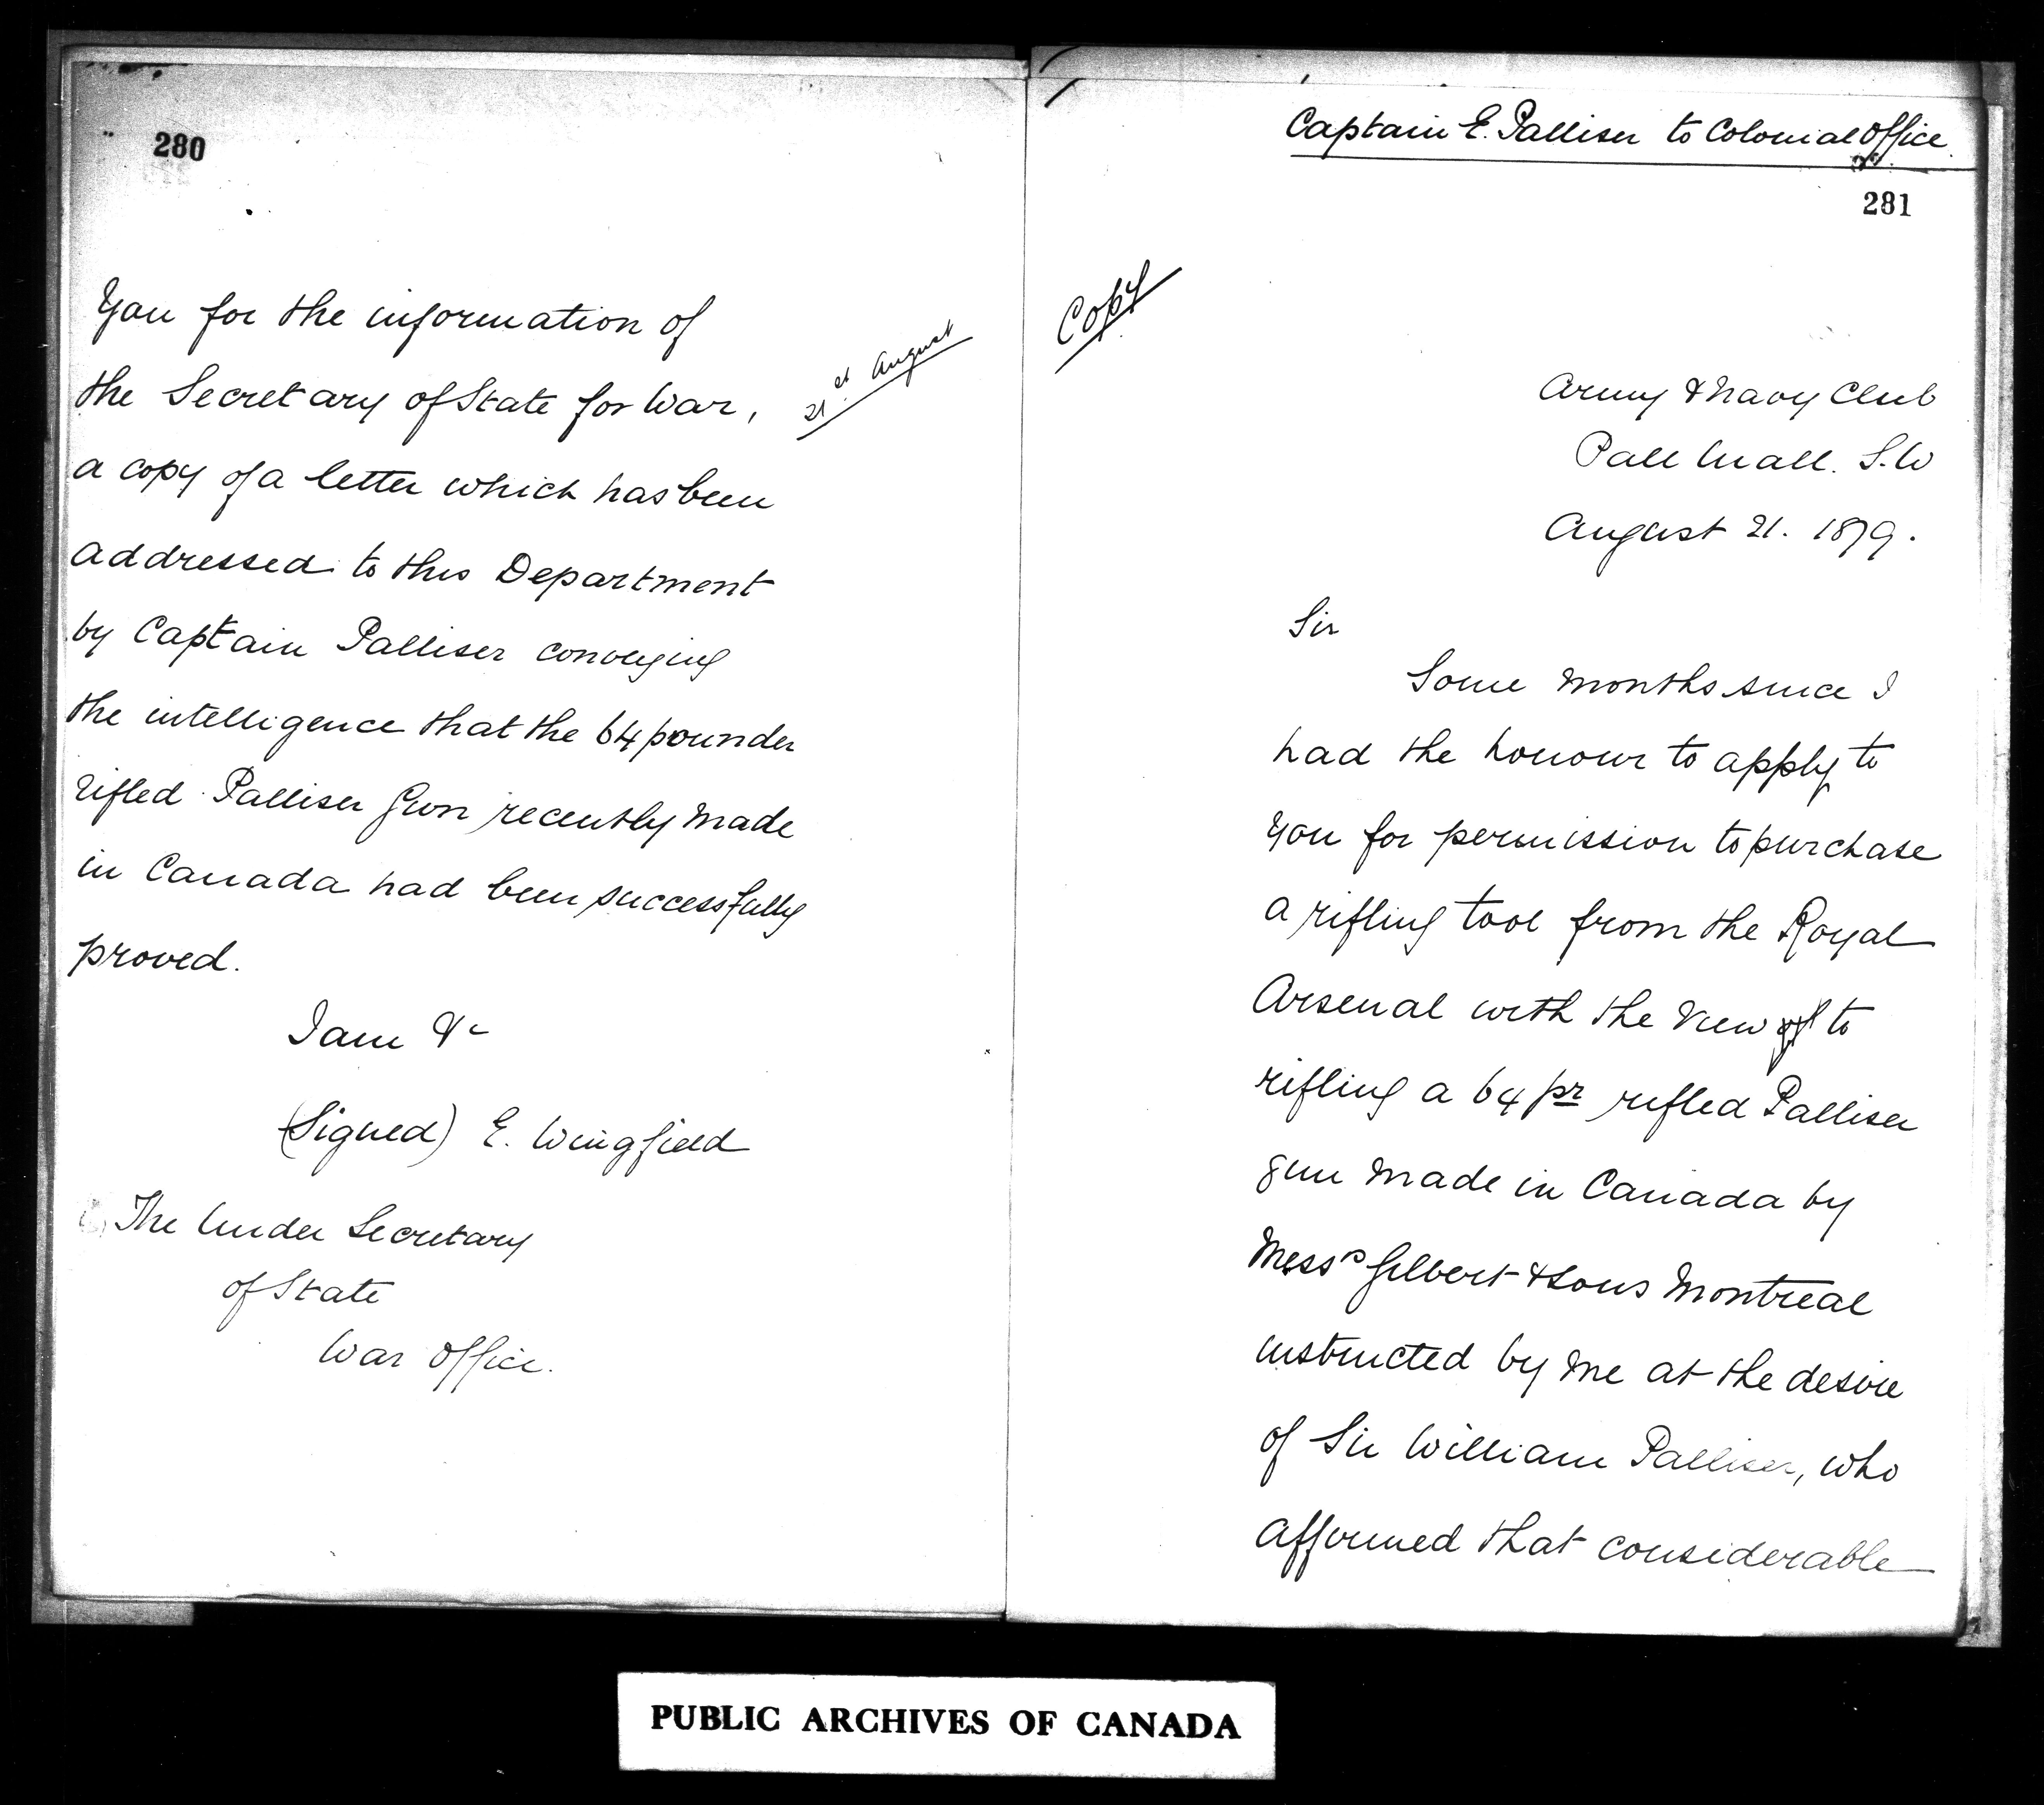 280
you for the information of
the Secretary of State for War,
21st August
a copy of a letter which has been
addressed to this Department
by Captain Palliser conveying
the intelligence that the 64 pounder
rifled Palliser Gun recently made
in Canada had been successfully
proved.
I am &c
(Signed) E. Wingfield
The Under Secretary
of State
War Office.
Captain E. Palliser to Colonial Office.
281
Copy
Army & Navy Club
Pall Mall. S.W
August 21. 1879.
Sir
Some months since I
had the honour to apply to
you for permission to purchase
a rifling tool from the Royal
Arsenal with the view of to
rifling a 64 pr rifled Palliser
gun made in Canada by
Messrs Gilbert & Sons Montreal
instructed by me at the desire
of Sir William Palliser, who
affirmed that considerable
PUBLIC ARCHIVES OF CANADA